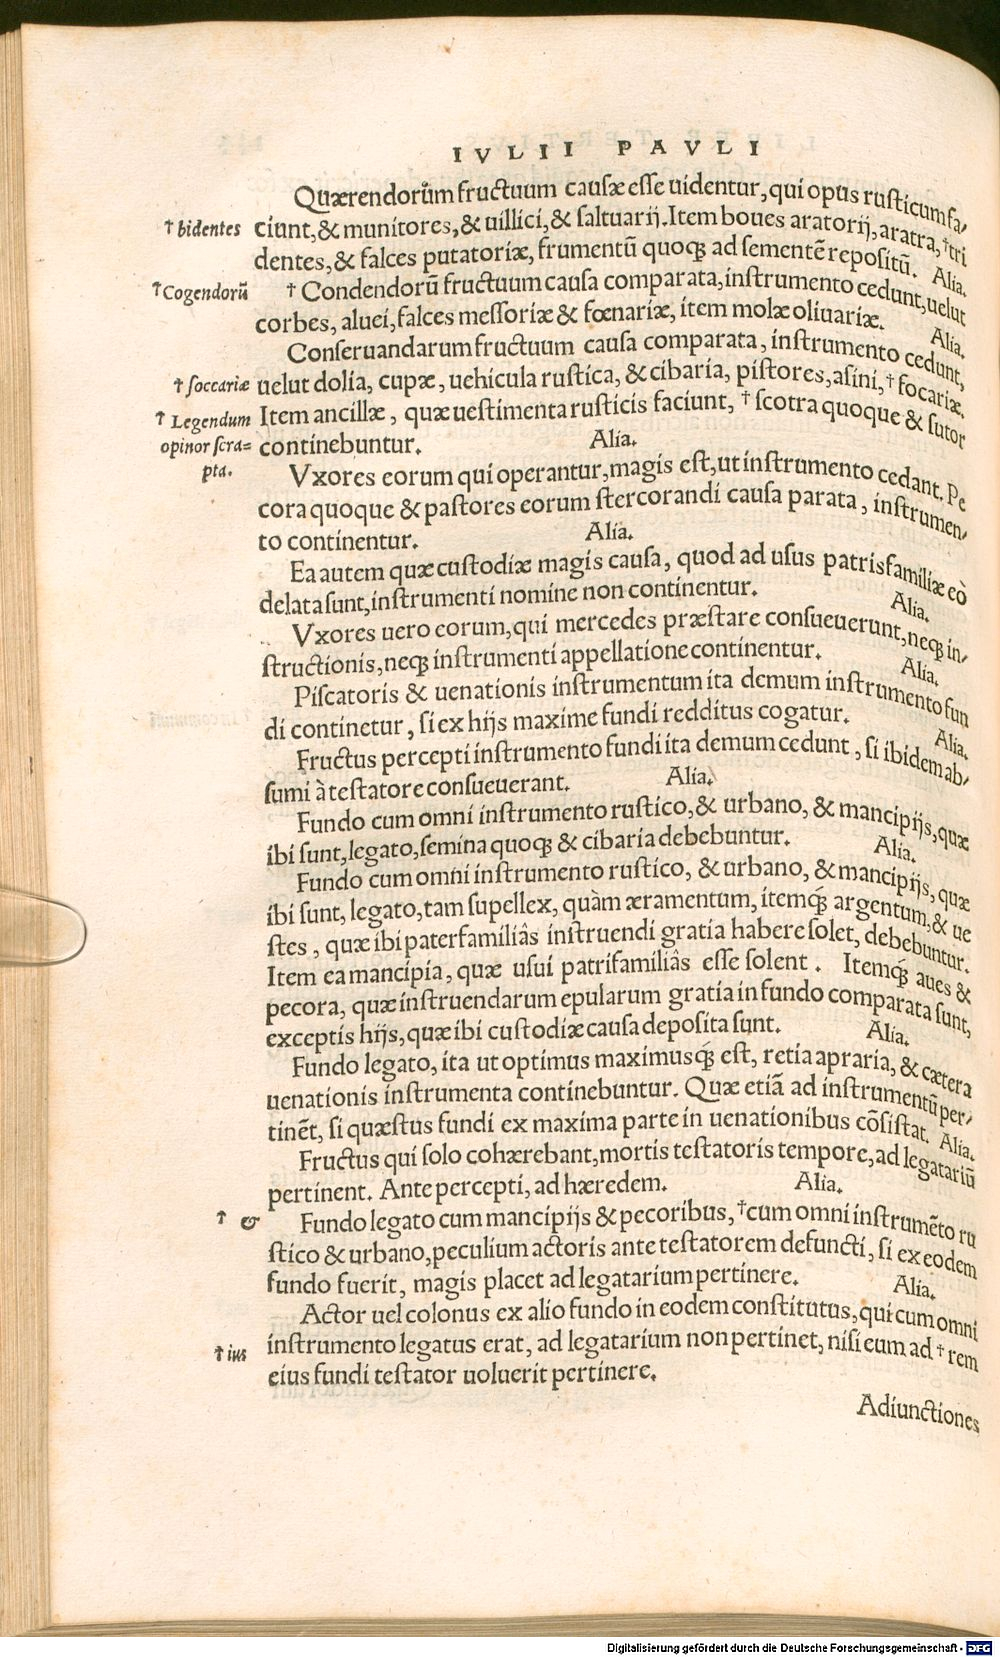 IVLII PAVLI
Quærendorum fructuum causæ esse uidentur, qui opus rusticum fa-
† bidentes
ciunt, & munitores, & uillici, & saltuarij. Item boues aratorij, aratra, † tri
dentes, & falces putatoriæ, frumentū quoq; ad sementē repositū. Alia.
† Cogendorū
† Condendorū fructuum causa comparata, instrumento cedunt, uelut
corbes, aluei, falces messoriæ & fœnariæ, item molæ oliuariæ. Alia.
Conseruandarum fructuum causa comparata, instrumento cedunt,
† soccariæ
uelut dolia, cupæ, uehicula rustica, & cibaria, pistores, asini, † focariæ.
† Legendum
Item ancillæ, quæ uestimenta rusticis faciunt, † scotra quoque & sutor
opinor scra=
continebuntur. Alia.
pta.
Vxores eorum qui operantur, magis est, ut instrumento cedant. Pe
cora quoque & pastores eorum stercorandi causa parata, instrumen-
to continentur. Alia.
Ea autem quæ custodiæ magis causa, quod ad usus patrisfamiliæ eò
delata sunt, instrumenti nomine non continentur. Alia.
Vxores uero eorum, qui mercedes præstare consueuerunt, neq; in-
structionis, neq; instrumenti appellatione continentur. Alia.
Piscatoris & uenationis instrumentum ita demum instrumento fun
di continetur, si ex hijs maxime fundi redditus cogatur. Alia.
Fructus percepti instrumento fundi ita demum cedunt, si ibidem ab-
sumi à testatore consueuerant. Alia.
Fundo cum omni instrumento rustico, & urbano, & mancipijs, quæ
ibi sunt, legato, semina quoq; & cibaria debebuntur. Alia.
Fundo cum omni instrumento rustico, & urbano, & mancipijs, quæ
ibi sunt, legato, tam supellex, quàm æramentum, itemq́; argentum, & ue
stes, quæ ibi paterfamiliâs instruendi gratia habere solet, debebuntur.
Item ea mancipia, quæ usui patrifamiliâs esse solent. Itemq́; aues &
pecora, quæ instruendarum epularum gratia in fundo comparata sunt,
exceptis hijs, quæ ibi custodiæ causa deposita sunt. Alia.
Fundo legato, ita ut optimus maximusq́; est, retia apraria, & cætera
uenationis instrumenta continebuntur. Quæ etiā ad instrumentū per-
tinēt, si quæstus fundi ex maxima parte in uenationibus cōsistat. Alia.
Fructus qui solo cohærebant, mortis testatoris tempore, ad legatariū
pertinent. Ante percepti, ad hæredem. Alia.
† &
Fundo legato cum mancipijs & pecoribus, † cum omni instrumēto ru
stico & urbano, peculium actoris ante testatorem defuncti, si ex eodem
fundo fuerit, magis placet ad legatarium pertinere. Alia.
Actor uel colonus ex alio fundo in eodem constitutus, qui cum omni
† ius
instrumento legatus erat, ad legatarium non pertinet, nisi eum ad † rem
eius fundi testator uoluerit pertinere.
Adiunctiones
Digitalisierung gefördert durch die Deutsche Forschungsgemeinschaft - DFG